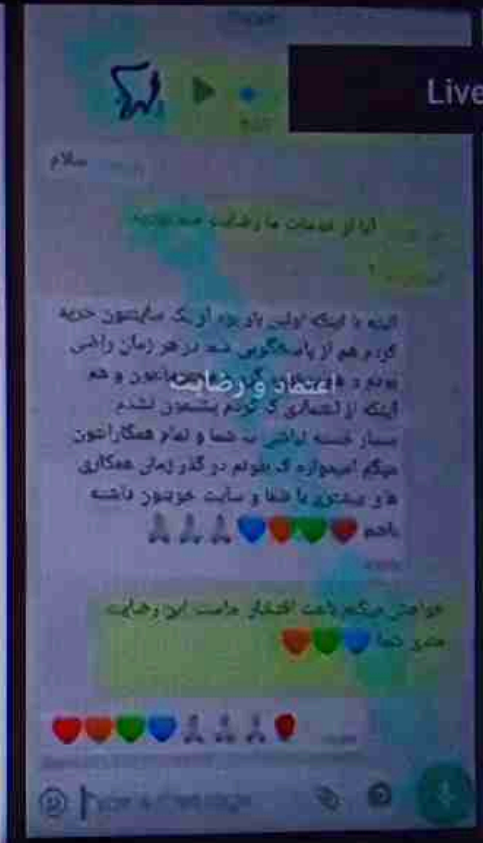 Live
سلام
آیا از خدمات ما رضایت
البته با اینکه اولین بار بود از یک سایتتون خرید
کردم هم از پاسخگویی شما در هر زمان راضی
بودم و
اعتماد و رضایت
اینکه از اعتمادی ک کردم پشیمون نشدم
خسته نباشی به شما و تمام همکاراتون
میگم امیدوارم ک بتونم در گذر زمان همکاری
های بیشتری با شما و سایت خوبتون داشته
باشم
خواهش میکنم باعث افتخار ماست این رضایت
مندی شما
Type a message